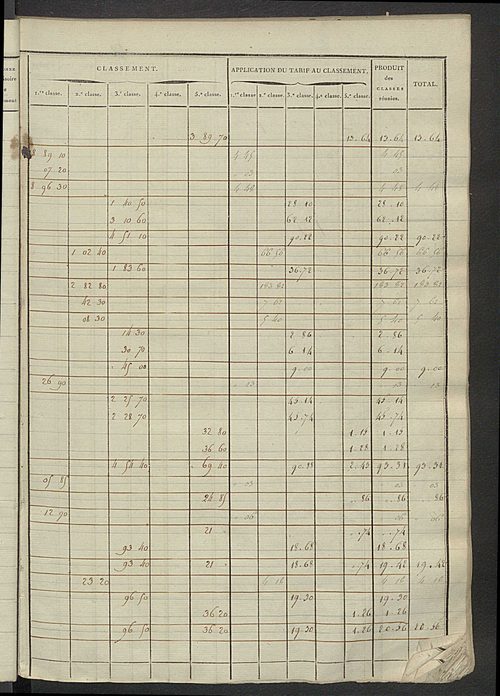 CLASSEMENT. APPLICATION DU TARIF AU CLASSEMENT. PRODUIT des CLASSES réunies. TOTAL.
1.re classe. 2.e classe. 3.e classe. 4.e classe. 5.e classe. 1.re classe 2.e classe. 3.e classe. 4.e classe. 5.e classe.
3 89 70 13.64 13.64 13.64
8 89 10 4 45 4 45
07 20 03 03
8 96 30 4 48 4 48 4 48
1 40 50 28 10 28 10
3 10 60 62.12 62.12
4 51 10 90.22 90.22 90.22
1 02 40 66 56 66 56 66 56
1 83 60 36.72 36.72 36.72
2 82 80 183 82 183 82 183 82
42 30
08 30 5 40 5 40 5 40
14 30 2 86 2.86
30 70 6 14 6.14
45 00 9.00 9.00 9.00
26 90 13 13 13
2 25 70 45 14 45 14
2 28 70 45.74 45.74
32 80 1.15 1.15
36 60 1.28 1.28
4 54 40 69 40 90.88 2.43 93.31 93.31
05 85 03 03 03
24 85 86 86 86
12 90 06 06 06
21 74 74
93 40 18.68 18.68
93 40 21 18.68 74 19.42 19.42
23 20 4 16 4 16 4 16
96 50 19.30 19.30
36 20 1.26 1.26
96 50 36 20 19.30 1.26 20.56 20.56